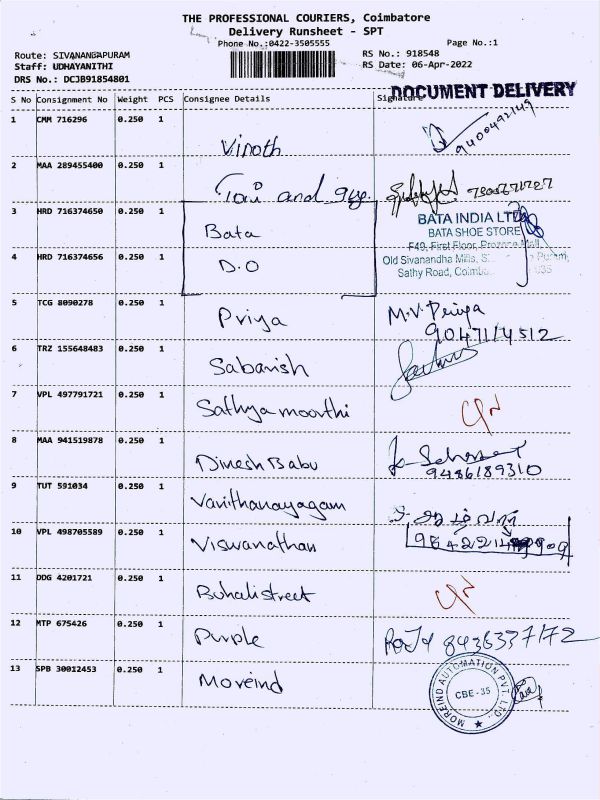 THE PROFESSIONAL COURIERS, Coimbatore
Delivery Runsheet - SPT
Phone No.:0422-3505555
Page No.:1
Route: SIVANANDAPURAM
RS No.: 918548
Staff: UDHAYANITHI
RS Date: 06-Apr-2022
DRS No.: DCJB91854801
DOCUMENT DELIVERY
S No Consignment No Weight PCS Consignee Details Signature
1 CMM 716296 0.250 1 Vinoth 9400492149
2 MAA 289455400 0.250 1 and
3 HRD 716374650 0.250 1 Bata
BATA INDIA LTD
BATA SHOE STORE
F49, First Floor, Prozone Mall,
4 HRD 716374656 0.250 1 D.O
Old Sivanandha Mills, Puram,
Sathy Road, 035
5 TCG 8090278 0.250 1 Priya M.V. Priya
6 TRZ 155648483 0.250 1 Sabarish
7 VPL 497791721 0.250 1 Sathya moorthi
8 MAA 941519878 0.250 1 Dinesh Babu
9486189310
9 TUT 591034 0.250 1 Vanithanayagam
10 VPL 498705589 0.250 1 Viswanathan
11 DDG 4201721 0.250 1 Buhali street
12 MTP 675426 0.250 1 Purple
13 SPB 30012453 0.250 1 Moreind
MOREIND AUTOMATION PVT. LTD.
CBE - 35